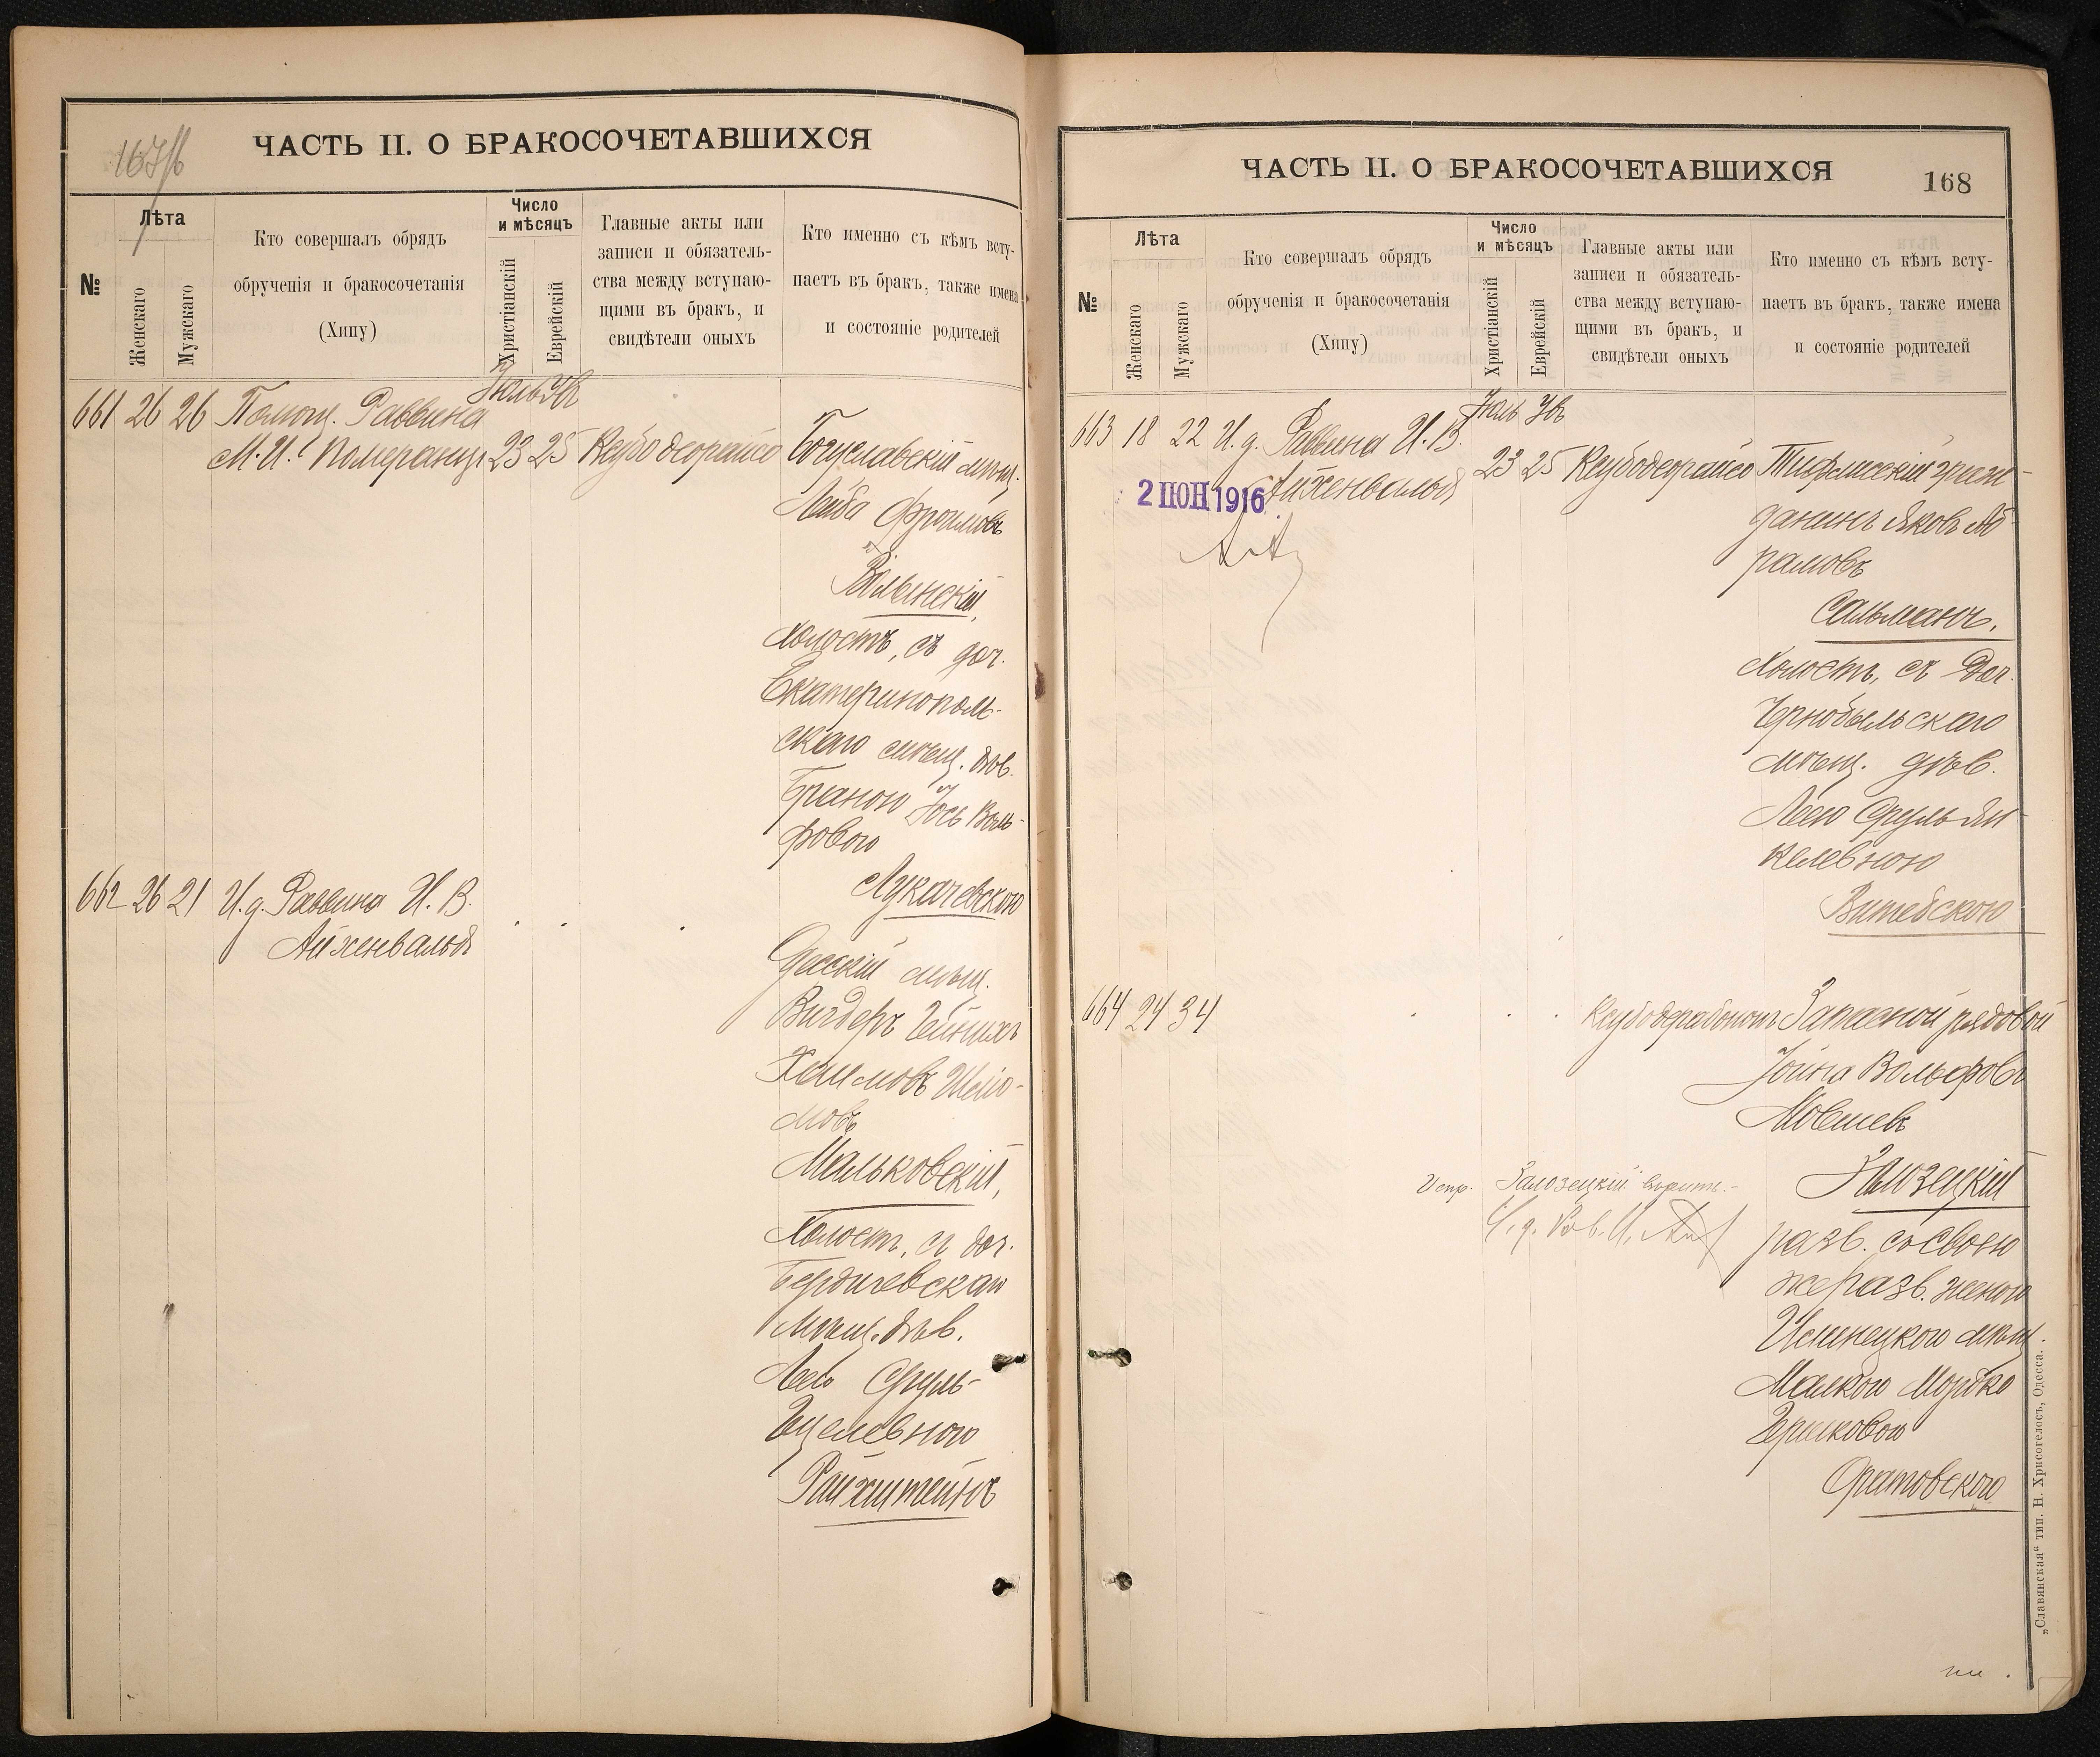 167/б
ЧАСТЬ II. О БРАКОСОЧЕТАВШИХСЯ
№
Лѣта
Женскаго
Мужскаго
Кто совершалъ обрядъ
обрученія и бракосочетанія
(Хипу)
Число
и мѣсяцъ
Христіанскій
Еврейскій
Главные акты или
записи и обязатель-
ства между вступаю-
щими въ бракъ, и
свидѣтели оныхъ
Кто именно съ кѣмъ всту-
паетъ въ бракъ, также имена
и состояніе родителей
661 26 26 Помощ. Раввина
М. И. Померанцъ 23 25 Кеубодеорайсо
Богуславскій мѣщ.
Лейба Фроимовъ
Волынскій,
холостъ, съ доч.
Екатеринополь-
скаго мѣщ. дѣв.
Браною Іось Воль-
фовою
Лукачевскою
662 26 21 И. д. Раввина И. В.
Айхенвальдъ
Одесскій мѣщ.
Вигдеръ Гейнихъ
Хаимовъ Шлио-
мовъ
Мальковскій,
Холостъ, съ доч.
Бердичевскаго
Мѣщ. дѣв.
Леею Сруль-
Ицелевною
Райхштейнъ
ЧАСТЬ II. О БРАКОСОЧЕТАВШИХСЯ
168
№
Лѣта
Женскаго
Мужскаго
Кто совершалъ обрядъ
обрученія и бракосочетанія
(Хипу)
Число
и мѣсяцъ
Христіанскій
Еврейскій
Главные акты или
записи и обязатель-
ства между вступаю-
щими въ бракъ, и
свидѣтели оныхъ
Кто именно съ кѣмъ всту-
паетъ въ бракъ, также имена
и состояніе родителей
Іюль Ув
663 18 22 И. д. Раввина И. В.
Айхенвальдъ
23 25 Кеубодеорайсо
2 ІЮН 1916
Тифлисскій граж-
данинъ Яковъ Аб-
рамовъ
Сальманъ,
Холостъ, съ Доч.
Чернобыльскаго
мѣщ. дѣв.
Леею Сруль Ян-
келевною
Витебскою
664 24 34
Запасной рядовой
Іойна Вольфовъ
Мовшевъ
Залозецкій
Испр. Залозецкій вѣрить.-
И. д. Рав. И. Айх
разв. со своею
же разв. женою
Илинецкого мѣщ.
Малкою Мордко
Гершковою
Оратовского
„Славянская“ тип. Н. Хрисогелосъ, Одесса.